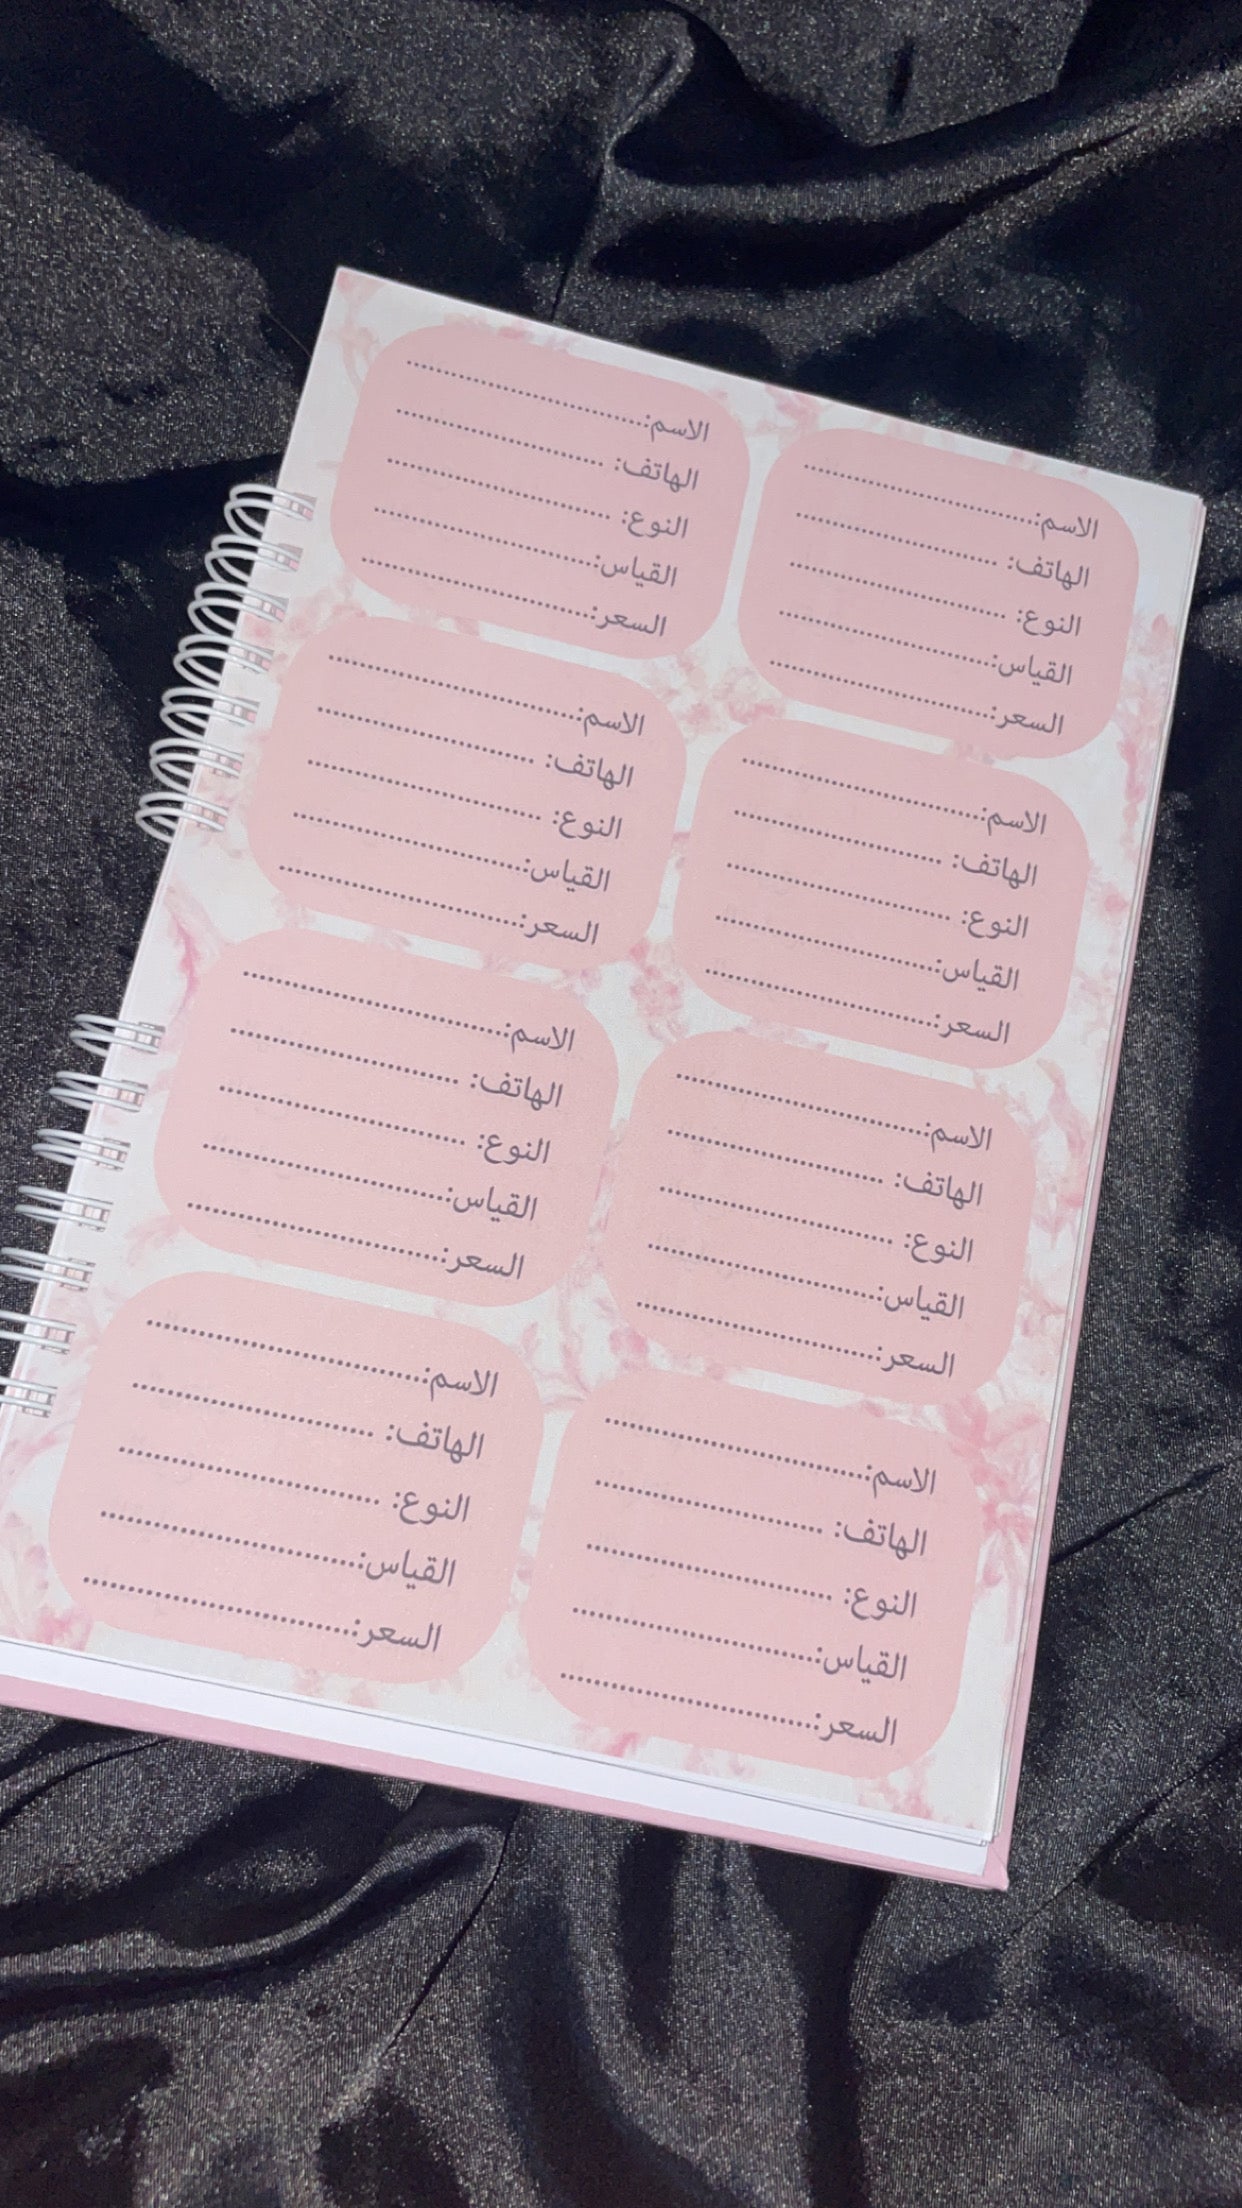 الاسم:..............................
الهاتف: ..........................
النوع: ............................
القياس:...........................
السعر:............................
الاسم:..............................
الهاتف: ..........................
النوع: ............................
القياس:...........................
السعر:............................
الاسم:..............................
الهاتف: ..........................
النوع: ............................
القياس:...........................
السعر:............................
الاسم:..............................
الهاتف: ..........................
النوع: ............................
القياس:...........................
السعر:............................
الاسم:..............................
الهاتف: ..........................
النوع: ............................
القياس:...........................
السعر:............................
الاسم:..............................
الهاتف: ..........................
النوع: ............................
القياس:...........................
السعر:............................
الاسم:..............................
الهاتف: ..........................
النوع: ............................
القياس:...........................
السعر:............................
الاسم:..............................
الهاتف: ..........................
النوع: ............................
القياس:...........................
السعر:............................